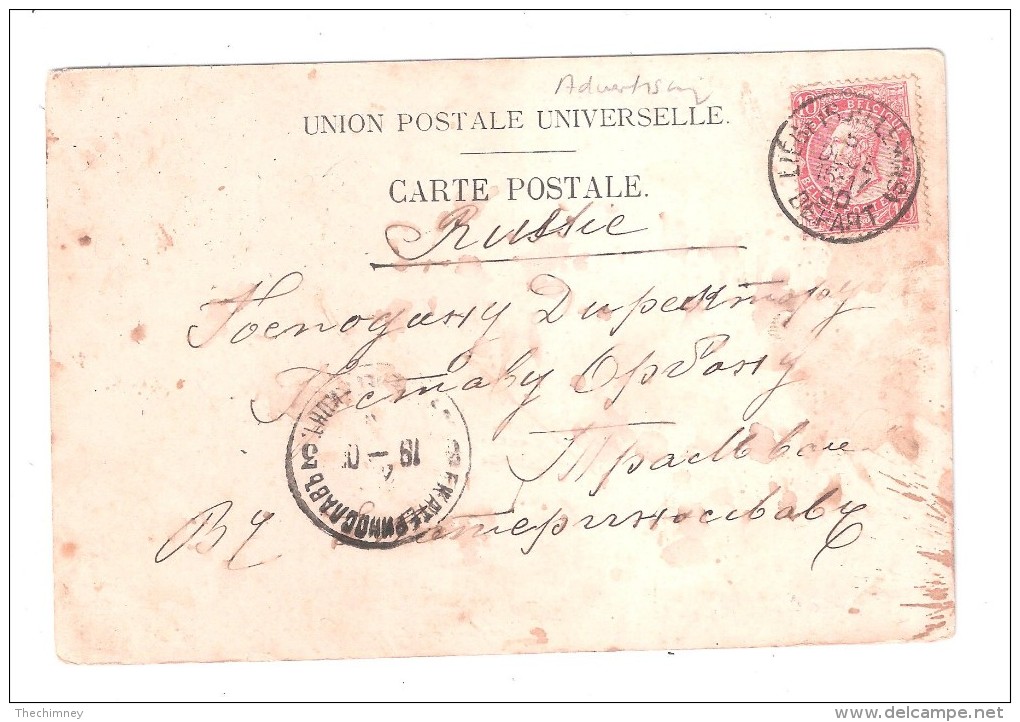 Advertising
UNION POSTALE UNIVERSELLE.
CARTE POSTALE.
Russie
Господину Директору
Густаву Орбону
Трамваи
Въ Екатеринославъ
10 BELGIQUE
LIÉGE (GUILLEMINS)
DEPART
ЕКАТЕРИНОСЛАВЪ
19
Thechimney
delcampe.net